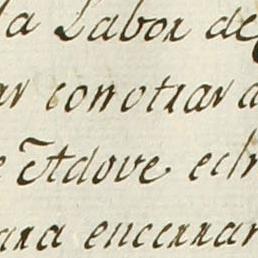 la Labor de
ar con otrar a
e Adove echr
ara encerrar